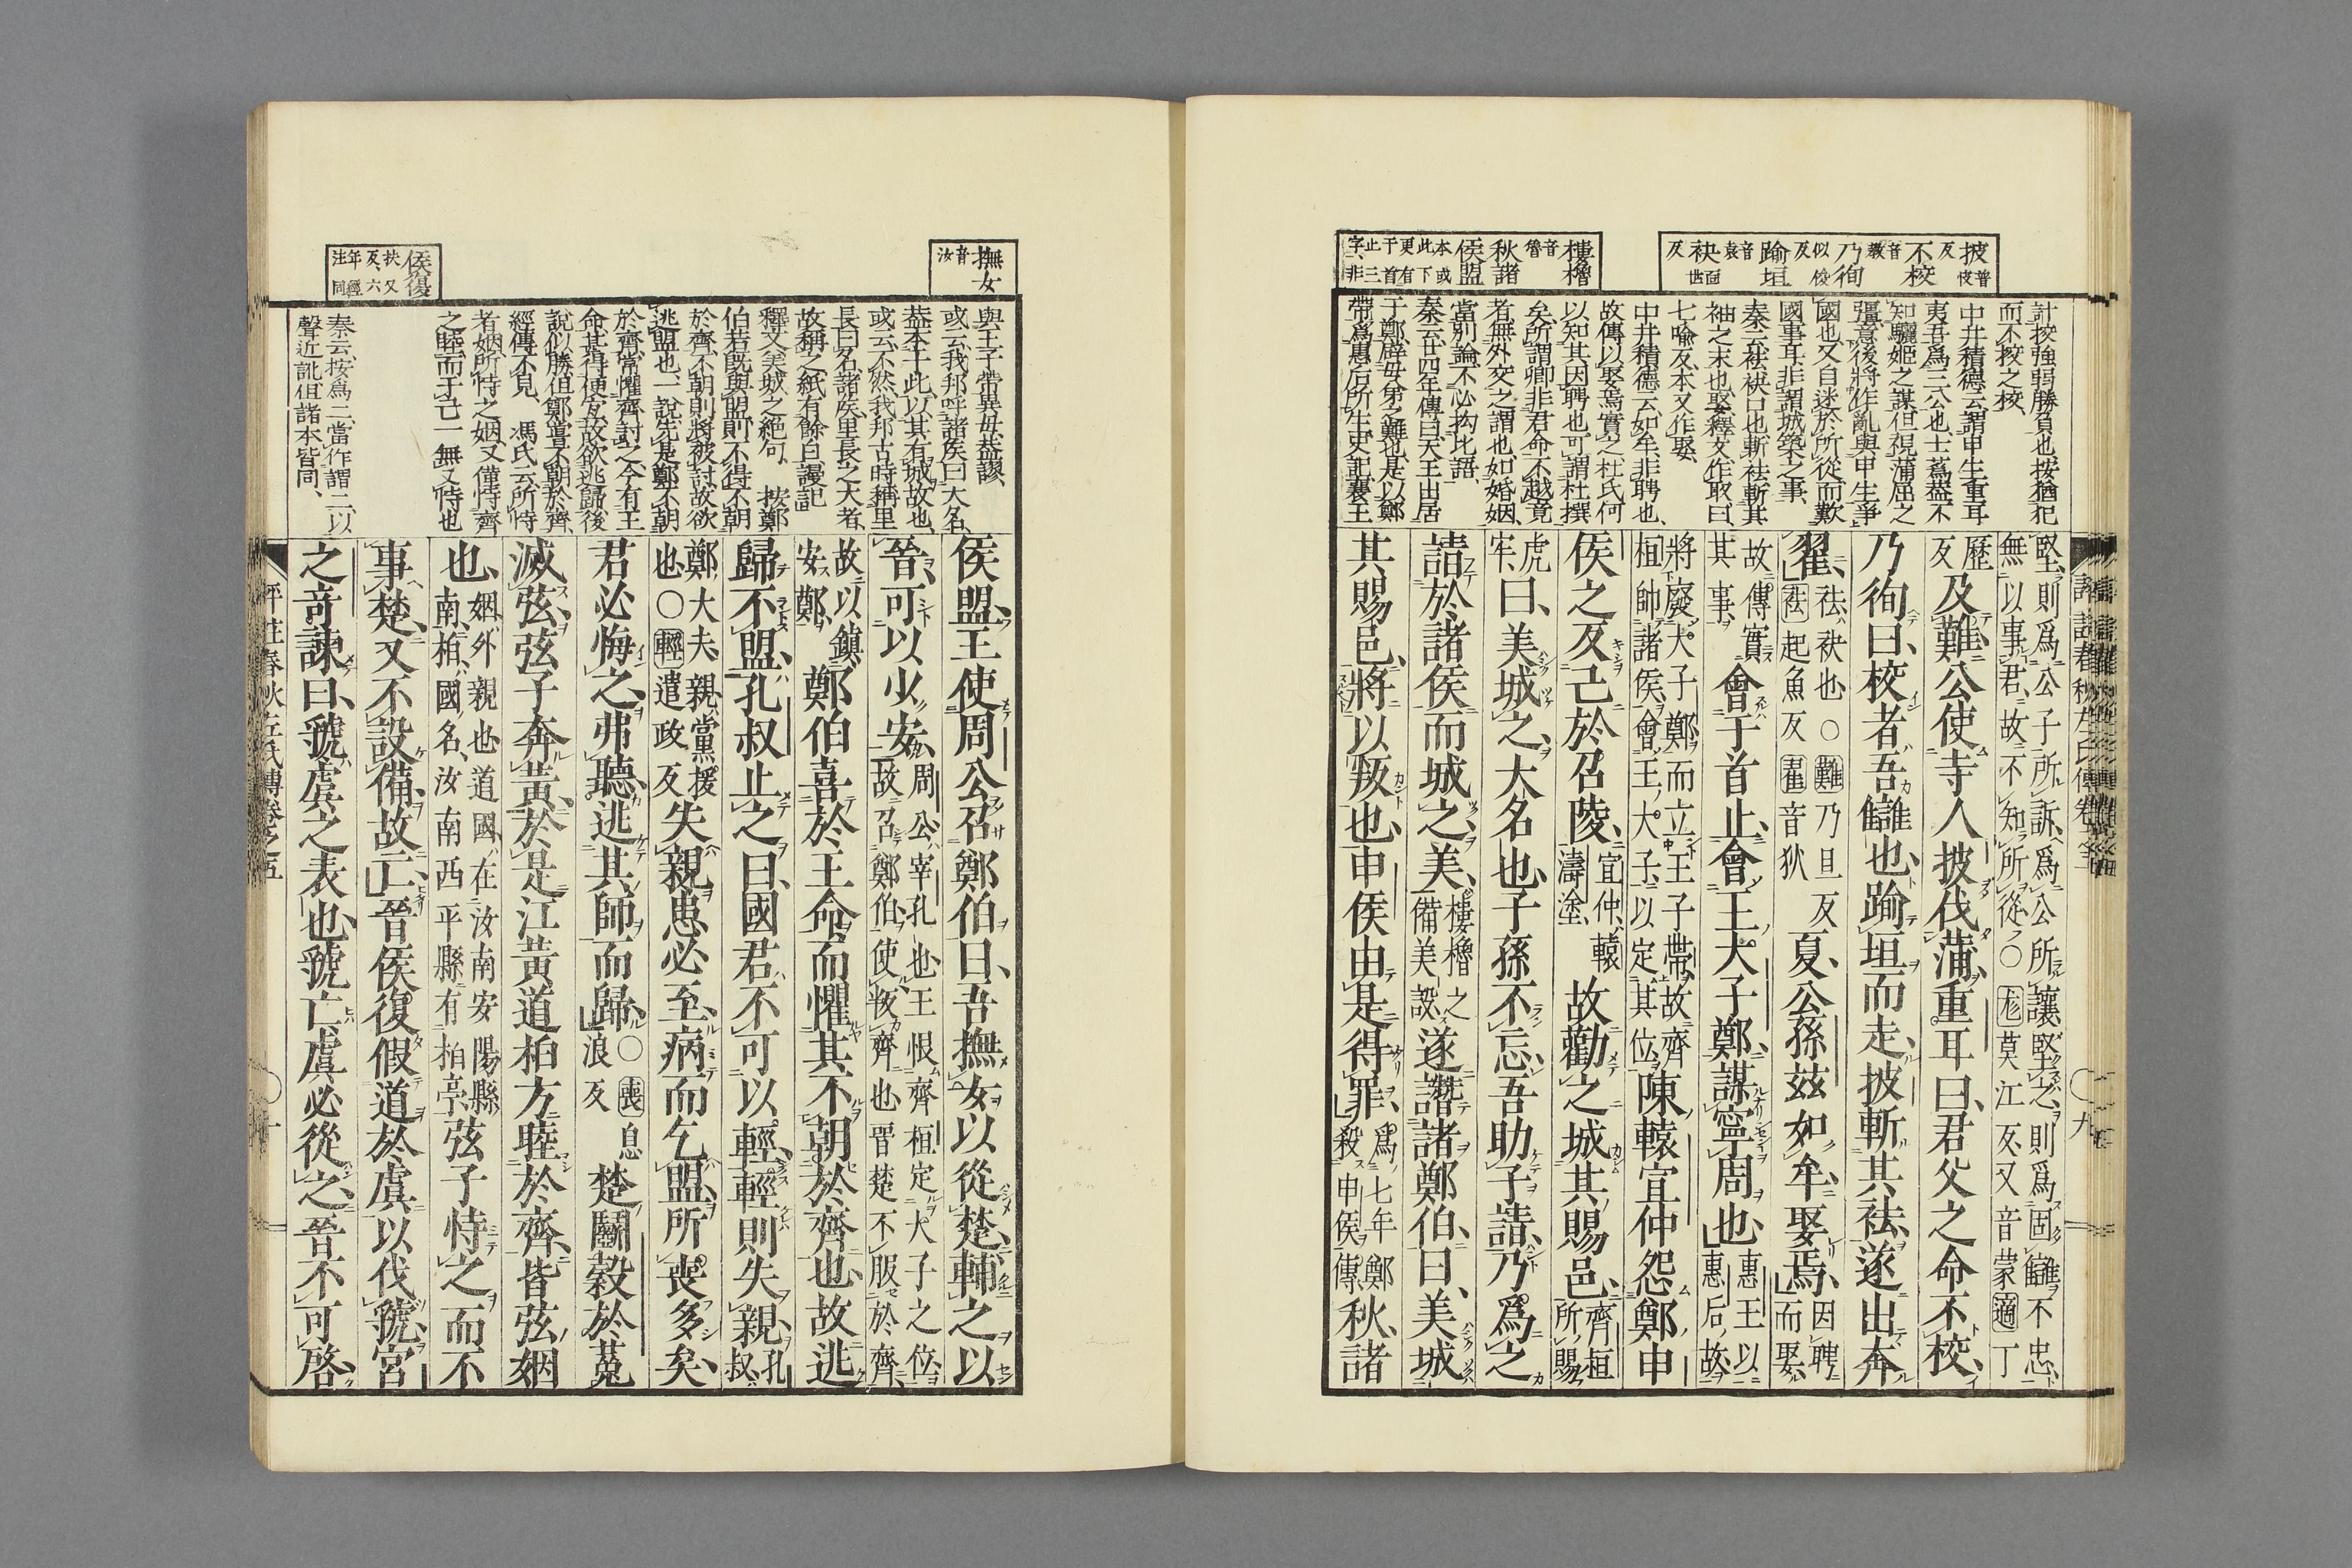 披 普皮反
不校 音敎
乃徇 似俊反
踰垣 音袁
袂 面世反
樓櫓 音魯
秋諸侯盟 本或此下更有于首止三字、非
計按強弱勝負也、按猶犯
而不挍之挍、
中井積德云、謂申生重耳
夷吾爲三公也、士蔿蓋不
知驪姬之謀、但視蒲屈之
彊、意後將作亂、與申生爭
國也、又自迷於所從而歎
國事耳、非謂城築之事、
秦云、袪袂口也、斬袪斬其
袖之末也、娶釋文作取曰、
七喩反、本又作娶、
中井積德云、如牟非聘也、
故傳以娶焉實之、杜氏何
以知其因聘也、可謂杜撰
矣、所謂卿非君命不越竟
者、無外交之謂也、如婚姻、
當別論、不必拘此語、
秦云、廿四年傳曰、天王出居
于鄭、辟母弟之難也、是以鄭
帶爲惠后所生、史記、襄王
堅、則爲公子所訴、爲公所讓、堅之、則爲固讎不忠、
無以事君、故不知所從、○尨莫江反、又音蒙、適丁
歷反 及難、公使寺人披伐蒲、重耳曰、君父之命不校、
乃徇曰、校者吾讎也、踰垣而走、披斬其袪、遂出奔
翟、袪、袂也、○難乃旦反 袪起魚反 翟音狄 夏、公孫玆如牟、娶焉、因聘而娶、
故傳實其事、 會于首止、會王大子鄭、謀寧周也、惠王以惠后故、
將廢大子鄭而立王子帶、故齊桓帥諸侯會王大子、以定其位、 陳轅宣仲怨鄭申
侯之反己於召陵、宣仲、轅濤塗、 故勸之城其賜邑、齊桓所賜
虎牢、 曰、美城之、大名也、子孫不忘、吾助子請、乃爲之
請於諸侯而城之、美、樓櫓之備美設、 遂譖諸鄭伯、曰、美城
其賜邑、將以叛也、申侯由是得罪、爲七年鄭殺申侯傳、 秋、諸
撫女 音汝
侯復 扶又反、六年經注同
與王子帶異母、蓋謬、
或云、我邦呼諸侯曰大名、
蓋本于此、以其有城故也、
或云、不然、我邦古時稱里
長曰名、諸侯里長之大者、
故稱之、紙有餘白謾記
釋文美城之絶句、 按鄭
伯若既與盟、則不得不朝
於齊、不朝則將被討、故欲
逃盟也、一說、先是鄭不朝
於齊、常懼齊討之、今有王
命、其得便宜、故欲逃歸、後
說似勝、但鄭嘗不朝於齊、
經傳不見、 馮氏云、所恃
者姻、所恃之姻、又僅恃齊
之睦、而于亡一無又恃也
秦云、按爲二、當作謂二、以
聲近訛、但諸本皆同、
侯盟、王使周公召鄭伯、曰、吾撫女以從楚、輔之以
晉、可以少安、周公、宰孔也、王恨齊桓定大子之位、故召鄭伯、使叛齊也、晉楚不服於齊、
故以鎭安鄭、 鄭伯喜於王命、而懼其不朝於齊也、故逃
歸不盟、孔叔止之、曰、國君不可以輕、輕則失親、孔叔
鄭大夫、親、黨援也、○輕遣政反 失親患必至、病而乞盟、所喪多矣、
君必悔之、弗聽、逃其師而歸、○喪息浪反 楚鬭榖於菟
滅弦、弦子奔黃、於是江黃道柏方睦於齊、皆弦姻
也、姻、外親也、道國、在汝南安陽縣南、柏、國名、汝南西平縣有柏亭、 弦子恃之、而不
事楚、又不設備、故亡、晉侯復假道於虞以伐虢、宮
之奇諫曰、虢、虞之表也、虢亡虞必從之、晉不可啓、
評註春秋左氏傳卷之五